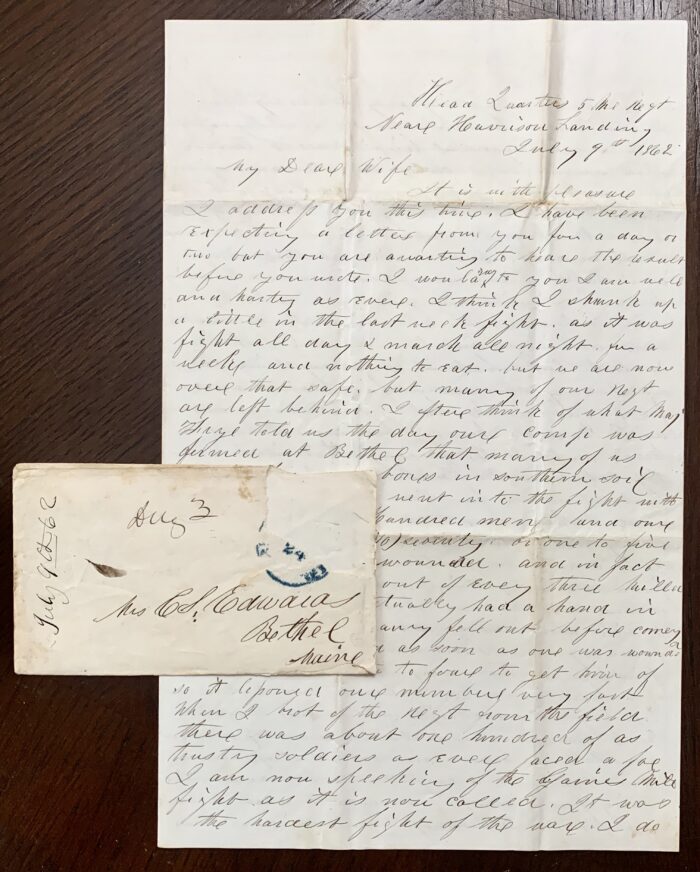 Head Quarters 5 Me Regt
Neare Harrison Landing
July 9th 1862
My Dear Wife
It is with pleasure
I address you this time. I have been
expecting a letter from you for a day or
two but you are awaiting to heare the result
before you write. I would say to you I am well
and harty as evere. I think I shrunk up
a little in the last week fight. as it was
fight all day & march all night. for a
weeke and nothing to eat. but we are now
overe that safe. but many of our Regt
are left behind. I ofter think of what Maj
told us the day oure comp was
formed at Bethel that many of us
bones in southern soil
went into the fight with
hundred men and our
seventy. or one to five
wounded. and in fact
out of every three
actually had a hand in
many fell out before comeng
as soon as one was wounded
to foure to get him of
so it oure numbers very fast
when I of the Regt from the field
there was about one hundred of as
trusty soldiers as evere faced a foe
I am now speeking of the Gaines Mill
fight as it is now called. It was
the hardest fight of the ware. I do
July 9th 62
24
Mrs C. S. Edwards
Bethel
Maine